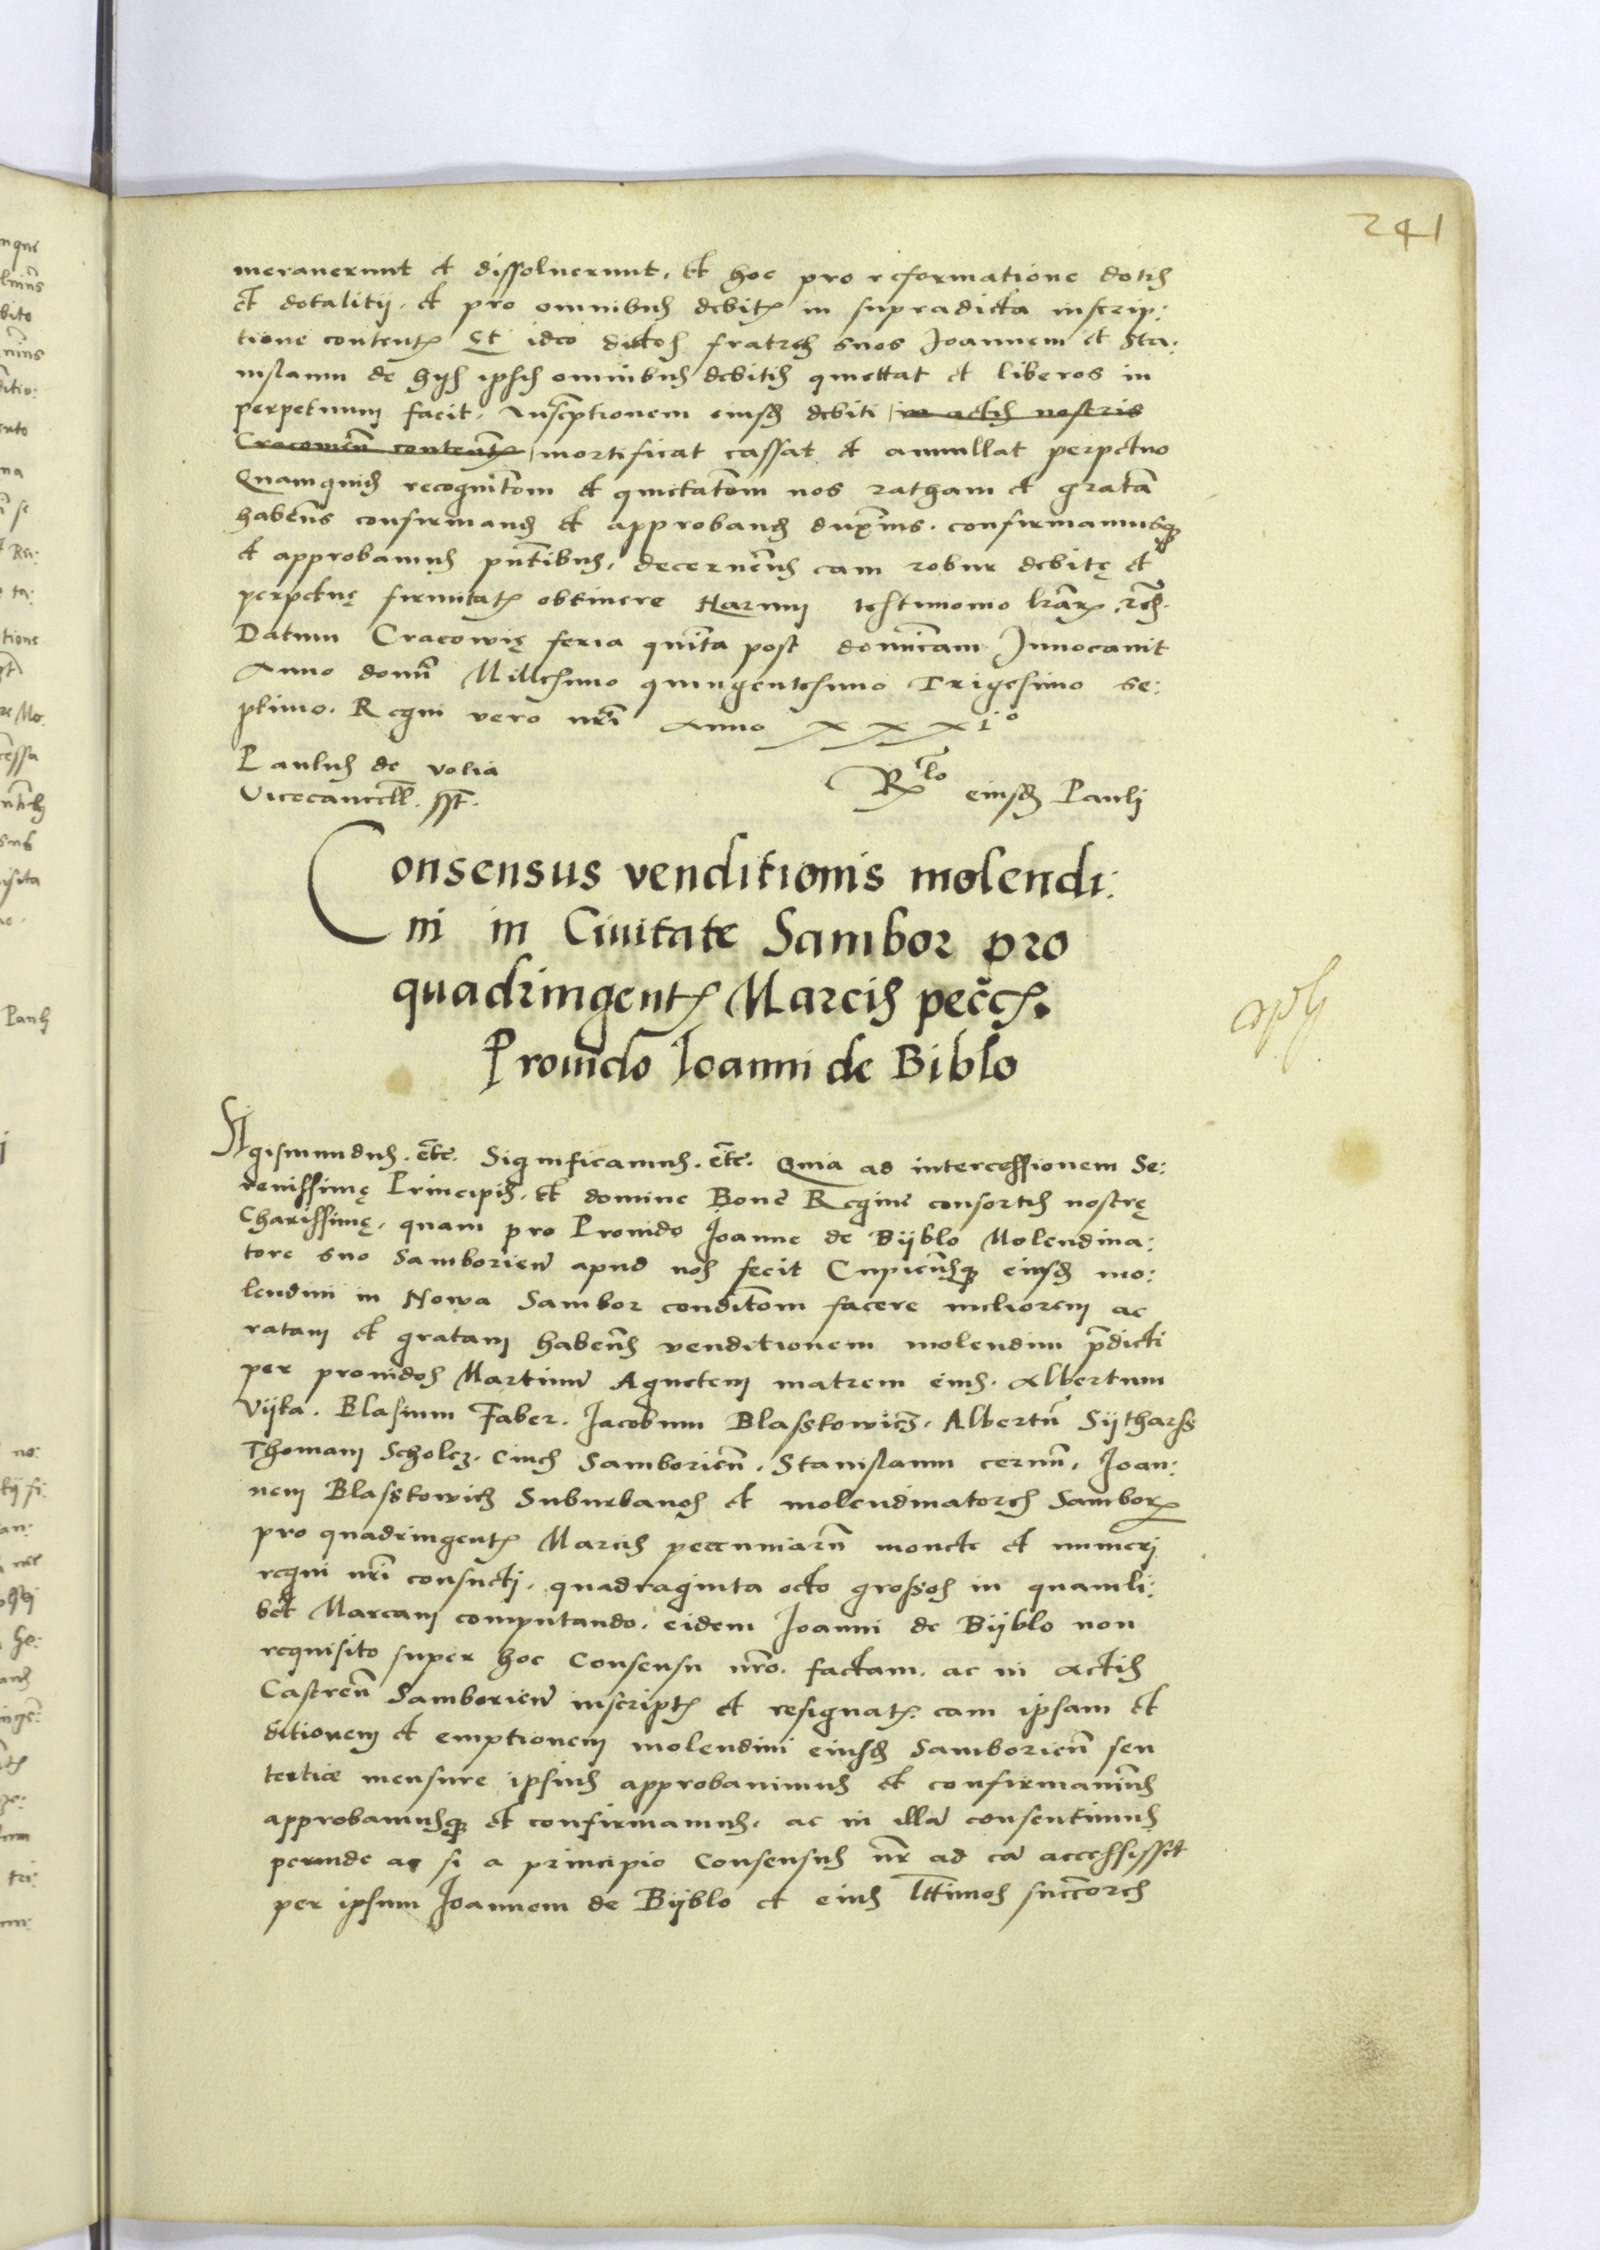 241
meraverunt et dissolverunt. Et hoc pro reformatione dotis
et dotalitii. et pro omnibus debitis in supradicta inscrip:
tione contentis Et ideo dictos fratres suos Joannem et Sta:
nislaum de hys ipsis omnibus debitis quiettat et liberos in
perpetuum facit. Inscriptionem eiusdem debiti in actis nostris
Cracovien contentam mortificat cassat et annullat perpetuo
Quamquidem recognitom et quietatom nos ratham et gratam
habentes confirmandam et approbandam duximus. confirmamusque
et approbamus pntibus. decernentes eam robur debitę et
perpetuę firmitatis obtinere Harum testimonio lrarum etc.
Datum Cracowię feria quinta post dominicam Invocavit
Anno domini Millesimo quingentesimo Trigesimo se:
ptimo. Regni vero nri Anno XXXIo
Paulus de volia
Vicecancell. sst.
Rlo eiusdem Pauli
Consensus venditionis molendi:
ni in Civitate Sambor pro
quadringentis Marcis pecc.
Provido Ioanni de Biblo
Sigismundus. etc. Significamus. etc. Quia ad intercessionem Se:
renissimę Principis. Et domine Bone Regine consortis nostrę
Charissimę. quam pro Provido Joanne de Bijblo Molendina:
tore suo Samborien apud nos fecit Cupientesque eiusdem mo:
lendini in Nowa Sambor conditom facere meliorem ac
ratam et gratam habentes venditionem molendini predicti
per providos Martinum Agnetem matrem eius. Albertum
Vijka. Blasium Faber. Jacobum Blasskowicz. Albertum Sijtharss
Thomam Scholcz. cives Samborien. Stanislaum cernun. Joan:
nem Blasskowicz Suburbanos et molendinatores Sambor
pro quadringentis Marcis peccuniarum monete et numeri
regni nri consueti. quadraginta octo grossos in quamli:
bet Marcam computando. eidem Joanni de Bijblo non
requisito super hoc Consensu nro. factam. ac in Actis
Castren Samborien inscriptam et resignatam. eam ipsam et
ditionem et emptionem molendini eiusdem Samborien seu
tertiae mensure ipsius approbavimus et confirmavimus
approbamusque et confirmamus. ac in illam consentimus
perinde ac si a principio Consensus nr ad ea accessisset
per ipsum Joannem de Bijblo et eius lttimos succores